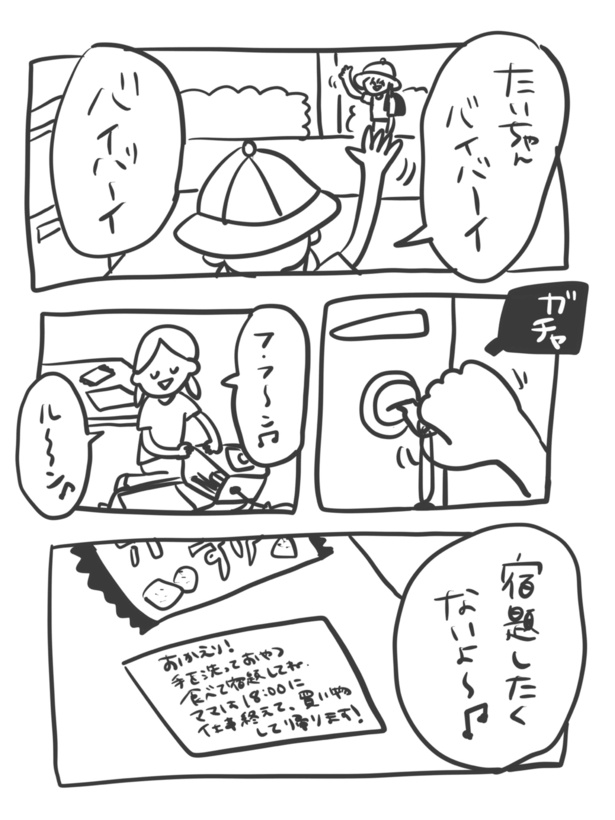 たいちゃん
バイバーイ
バイバーイ
ガチャ
フ・フ〜ン♫
ル〜〜ン♪
宿題したく
ないよ〜♫
おかえり!
手を洗っておやつ
食べて宿題してね.
ママは18:00に
仕事終えて、買い物
して帰ります!